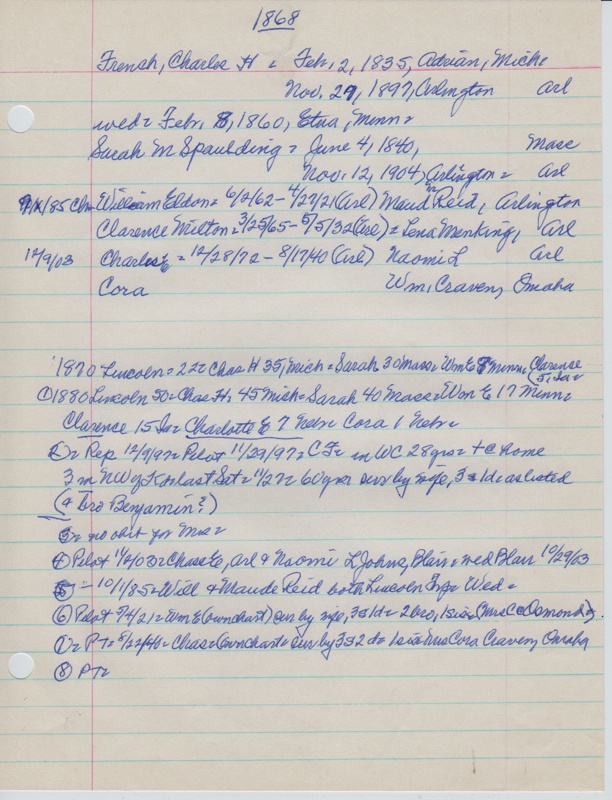 1868
French, Charles H = Feb. 2, 1835, Adrian, Mich=
Nov. 27, 1897, Arlington Arl
wed = Feb. 8, 1860, Etna, Minn=
Sarah M Spaulding = June 4, 1840, Mass
Nov. 12, 1904, Arlington = Arl
William Eldon = 6/2/62 - 4/27/21 (Arl) Maud Reid, Arlington
Clarence Milton = 3/25/65 - 5/5/32 (Arl) = Lena Menking, Arl
12/9/03 Charles E = 12/28/72 - 8/17/40 (Arl) Naomi L Arl
Cora Wm, Craven, Omaha
'1870 Lincoln = 22 = Chas H 35, Mich = Sarah 30 Mass = Wm E 8 Minn = Clarence
(5, Ia =
① 1880 Lincoln 50 = Chas H. 45 Mich = Sarah 40 Mass = Wm E 17 Minn =
Clarence 15 Ia = Charlotte E 7 Nebr Cora 1 Nebr =
= Rep 12/9/97 = Pilot 11/29/97 = C F = in WC 28 yrs = + c home
3 m NW of K = last Sat = 11/27 = 60 yrs surv by wife, 3s 1d = as listed
(4 bro Benjamin?)
3 = no obit for Mrs =
④ Pilot = Chas E, Arl & Naomi L Johns, Blair = wed Blair 10/29/03
⑤ = 10/1/85 = Will & Maude Reid both Lincoln = Wed =
⑥ Pilot 5/4/21 = Wm E (own chart) sur by wife, 3s 1d = 2 bro, 1 sis (Mrs C C Osmond)
= PT = 8/22/40 = Chas = (own chart = surv by 3s 2d = 1 sis Mrs Cora Craven, Omaha
⑧ PT =